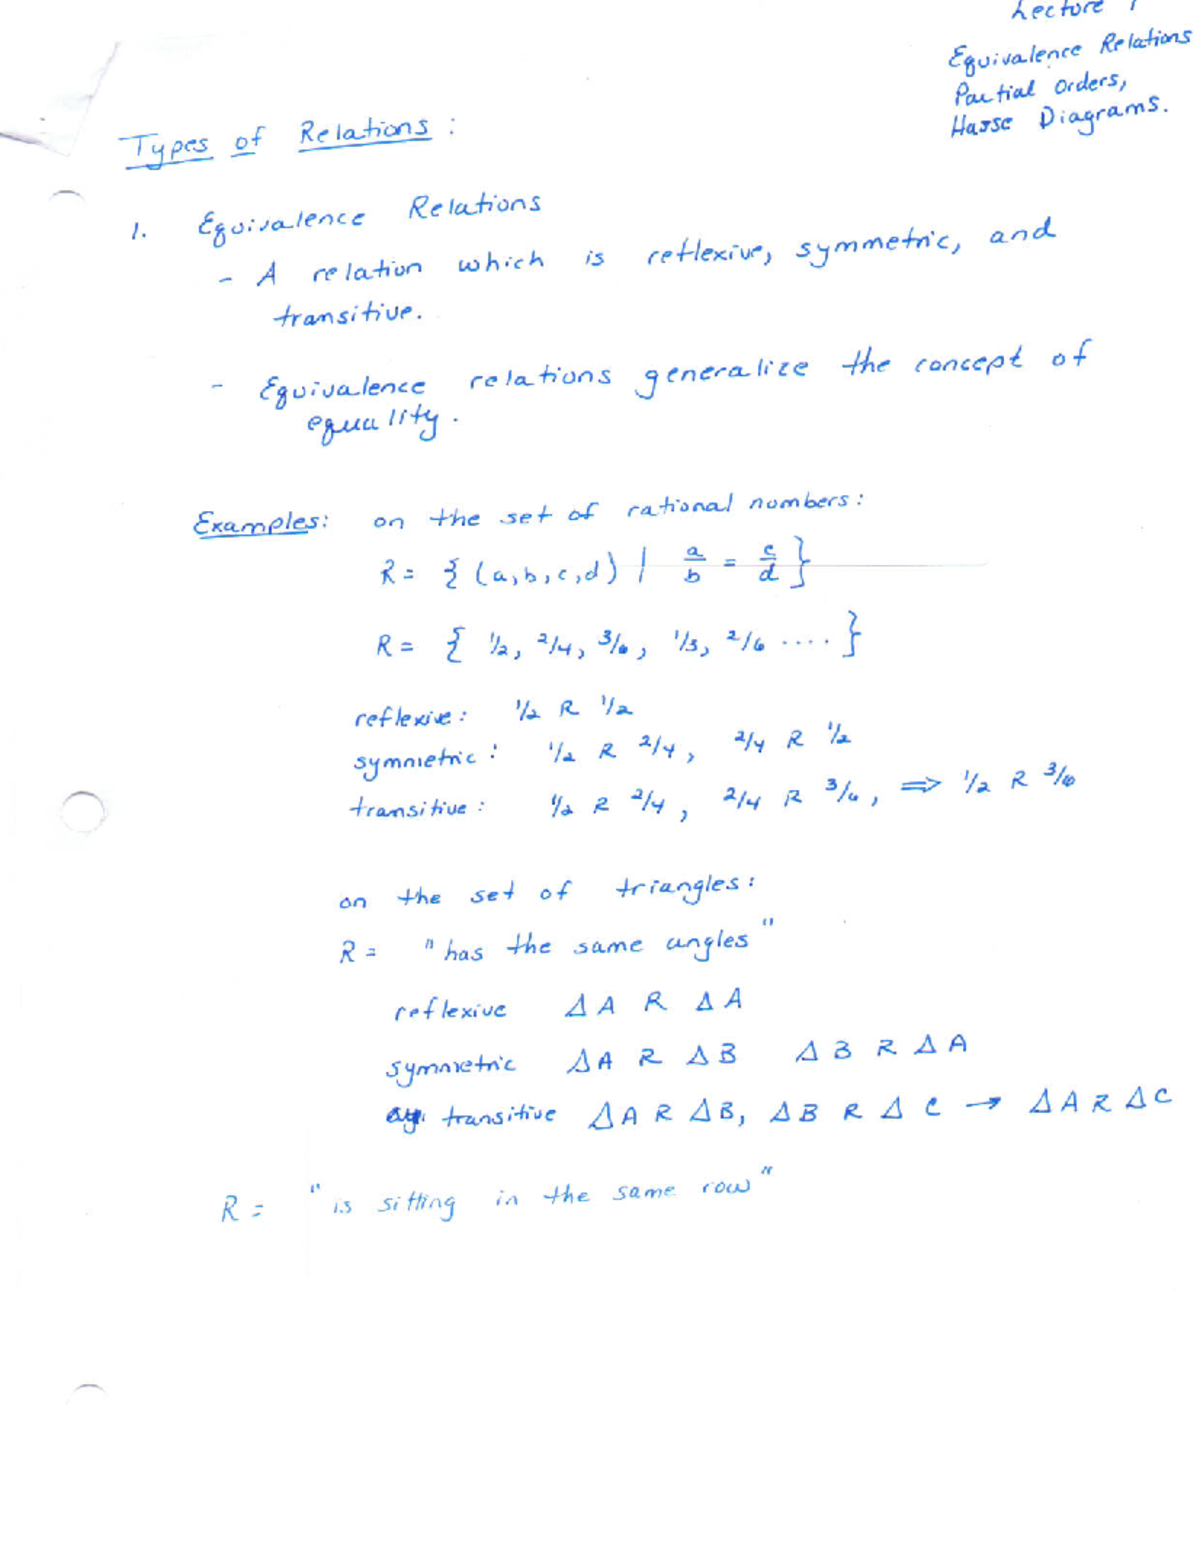 Lecture
Equivalence Relations
Partial Orders,
Hasse Diagrams.
Types of Relations :
1. Equivalence Relations
- A relation which is reflexive, symmetric, and
transitive.
- Equivalence relations generalize the concept of
equality.
Examples: on the set of rational numbers:
R = { (a,b,c,d) | a/b = c/d }
R = { 1/2, 2/4, 3/6, 1/3, 2/6 .... }
reflexive: 1/2 R 1/2
symmetric: 1/2 R 2/4, 2/4 R 1/2
transitive: 1/2 R 2/4, 2/4 R 3/6, => 1/2 R 3/6
on the set of triangles:
R = "has the same angles"
reflexive Δ A R Δ A
symmetric Δ A R Δ B Δ B R Δ A
transitive Δ A R Δ B, Δ B R Δ C → Δ A R Δ C
R = "is sitting in the same row"